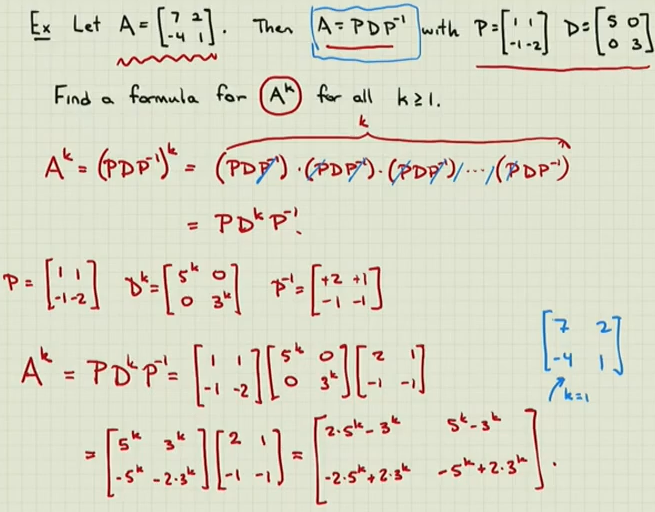 Ex Let A = [7 2; -4 1]. Then A = PDP⁻¹ with P = [1 1; -1 -2] D = [5 0; 0 3]
Find a formula for Aᵏ for all k ≥ 1.
k
Aᵏ = (PDP⁻¹)ᵏ = (PDP⁻¹)·(PDP⁻¹)·(PDP⁻¹)···(PDP⁻¹)
= PDᵏP⁻¹.
P = [1 1; -1 -2] Dᵏ = [5ᵏ 0; 0 3ᵏ] P⁻¹ = [+2 +1; -1 -1]
Aᵏ = PDᵏP⁻¹ = [1 1; -1 -2] [5ᵏ 0; 0 3ᵏ] [2 1; -1 -1]
= [5ᵏ 3ᵏ; -5ᵏ -2·3ᵏ] [2 1; -1 -1] = [2·5ᵏ - 3ᵏ 5ᵏ - 3ᵏ; -2·5ᵏ + 2·3ᵏ -5ᵏ + 2·3ᵏ].
[7 2; -4 1]
k=1